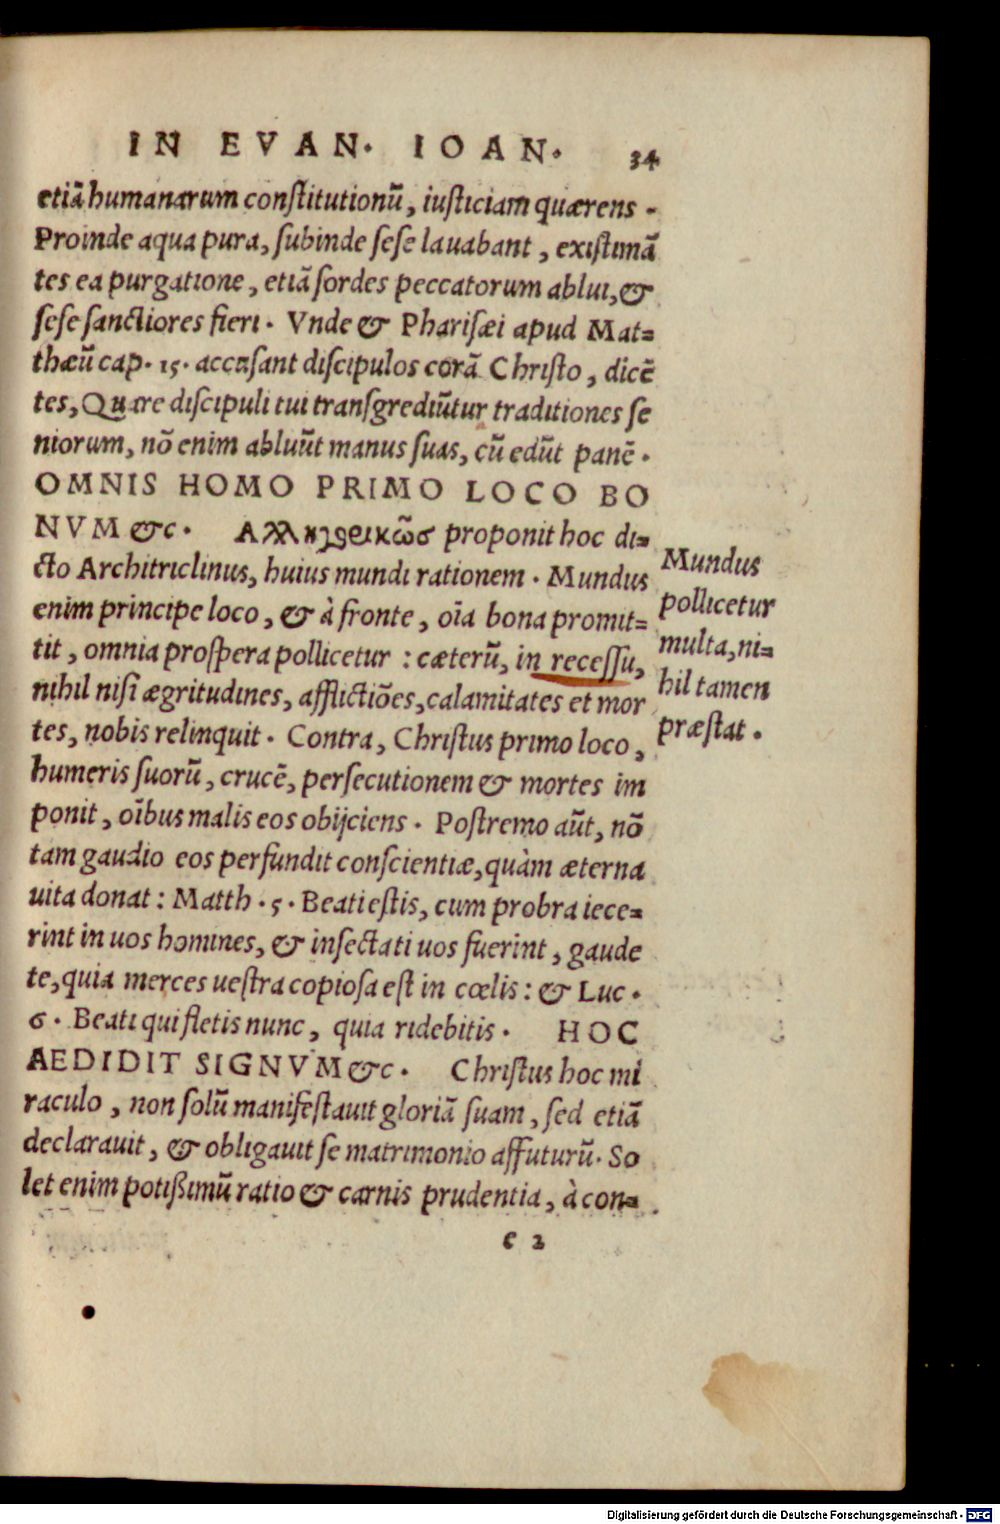 IN EVAN. IOAN. 34
etiā humanarum constitutionū, iusticiam quærens.
Proinde aqua pura, subinde sese lauabant, existimā
tes ea purgatione, etiā sordes peccatorum ablui, &
sese sanctiores fieri. Vnde & Pharisæi apud Mat=
thæū cap. 15. accusant discipulos corā Christo, dicē
tes, Quare discipuli tui transgrediūtur traditiones se
niorum, nō enim abluūt manus suas, cū edūt panē.
OMNIS HOMO PRIMO LOCO BO
NVM &c. Αλληγορικῶς proponit hoc di=
cto Architriclinus, huius mundi rationem. Mundus
enim principe loco, & à fronte, oīa bona promit=
tit, omnia prospera pollicetur: cæterū, in recessu,
nihil nisi ægritudines, afflictiōes, calamitates et mor
tes, nobis relinquit. Contra, Christus primo loco,
humeris suorū, crucē, persecutionem & mortes im
ponit, oībus malis eos obijciens. Postremo aūt, nō
tam gaudio eos perfundit conscientiæ, quàm æterna
uita donat: Matth. 5. Beati estis, cum probra iece=
rint in uos homines, & insectati uos fuerint, gaude
te, quia merces uestra copiosa est in cœlis: & Luc.
6. Beati qui fletis nunc, quia ridebitis. HOC
AEDIDIT SIGNVM &c. Christus hoc mi
raculo, non solū manifestauit gloriā suam, sed etiā
declarauit, & obligauit se matrimonio affuturū. So
let enim potißimū ratio & carnis prudentia, à con=
e 2
Mundus
pollicetur
multa, ni=
hil tamen
præstat.
Digitalisierung gefördert durch die Deutsche Forschungsgemeinschaft - DFG